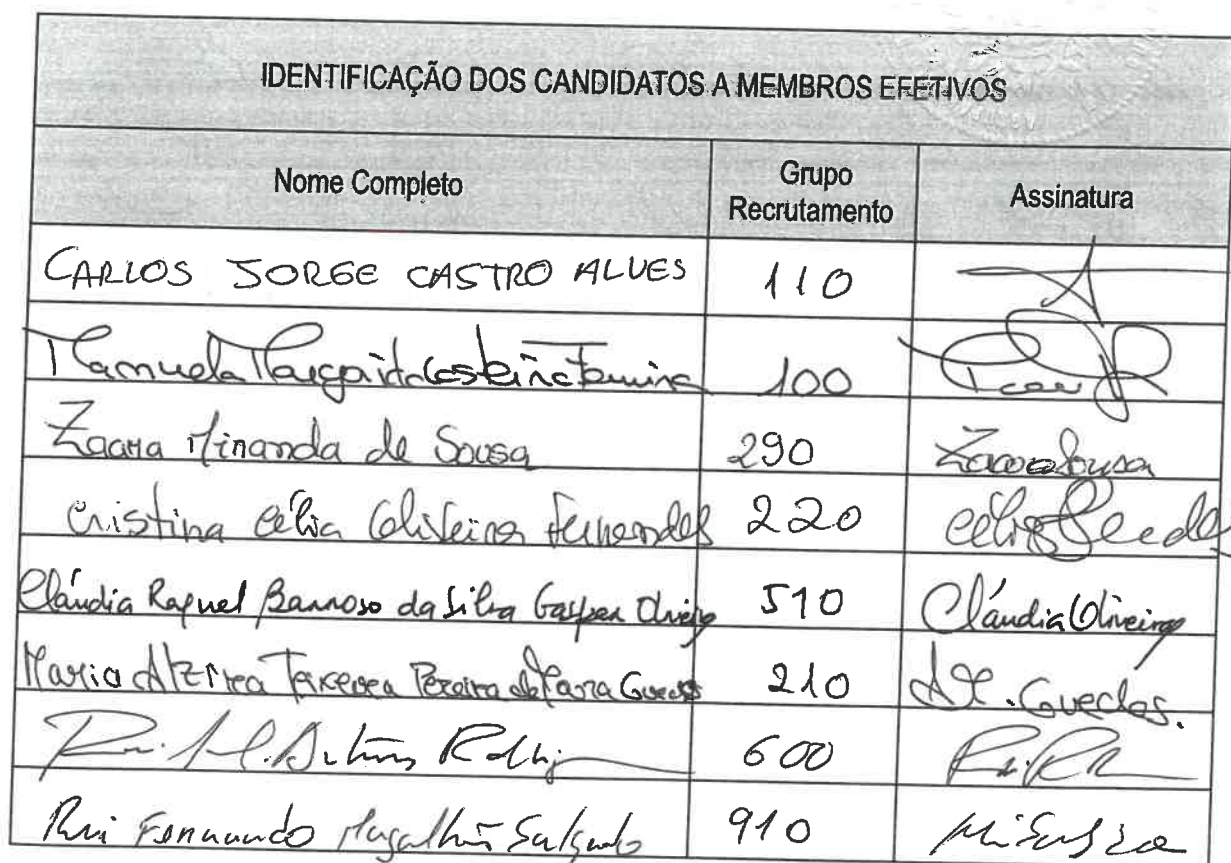 IDENTIFICAÇÃO DOS CANDIDATOS A MEMBROS EFETIVOS
Nome Completo Grupo Recrutamento Assinatura
CARLOS JORGE CASTRO ALVES 110
Manuela Margarida 100
Zaara Miranda de Sousa 290 Zaara Sousa
Cristina Célia Oliveira Fernandes 220 Célia
Cláudia Raquel Barroso da Silva Gaspar Oliveira 510 Cláudia Oliveira
Maria Alzira Teixeira Pereira de Guedes 210 Guedes.
Rui 600
Rui Fernando Magalhães Salgado 910